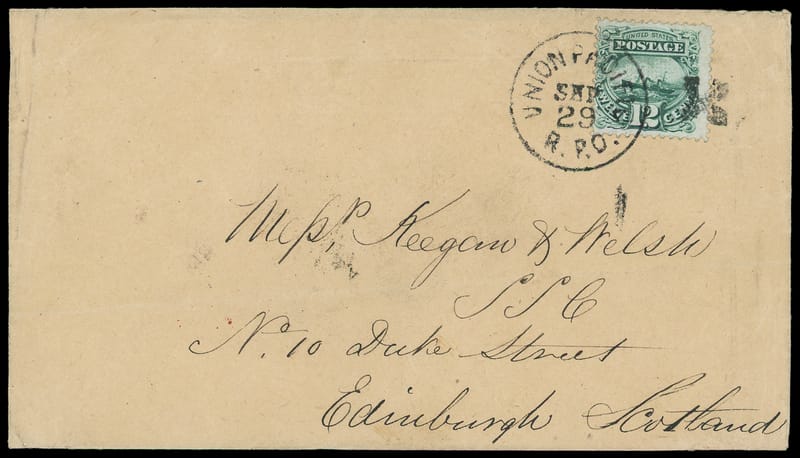 UNITED STATES
POSTAGE
TWELVE 12 CENTS
UNION PACIFIC
SEP
29
R.P.O.
Messrs Keegan & Welsh
S S C
N. 10 Duke Street
Edinburgh Scotland